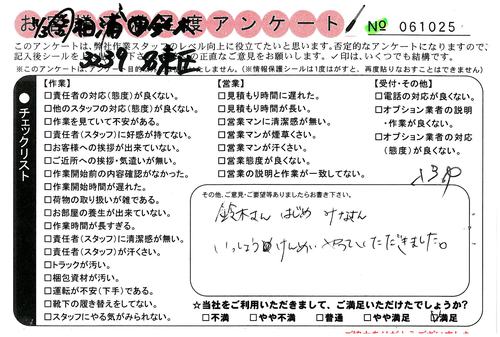 お度アンケート
No 061025
このアンケートは、弊社作業スタッフのレベル向上に役立てたいと思います。否定的なアンケートになりますので、
記入後シールを上の正直なご意見をお願いします。✓印は、いくつでも結構です。
※このアンケートは、人事評価の目的ではございません。(※情報保護シールは1度はがすと、再度貼りなおすことはできません)
●チェックリスト
【作業】
□責任者の対応(態度)が良くない。
□他のスタッフの対応(態度)が良くない。
□作業を見ていて不安がある。
□責任者(スタッフ)に好感が持てない。
□お客様への挨拶が出来ていない。
□ご近所への挨拶・気遣いが無い。
□作業開始前の内容確認がなかった。
□作業開始時間が遅れた。
□荷物の取り扱いが雑である。
□お部屋の養生が出来ていない。
□作業時間が長すぎる。
□責任者(スタッフ)に清潔感が無い。
□責任者(スタッフ)が汗くさい。
□トラックが汚い。
□梱包資材が汚い。
□運転が不安(下手)である。
□靴下の履き替えをしてない。
□スタッフにやる気がみられない。
【営業】
□見積もり時間に遅れた。
□見積もり時間が長い。
□営業マンに清潔感が無い。
□営業マンが煙草くさい。
□営業マンが汗くさい。
□営業態度が良くない。
□営業の説明と作業が一致してない。
【受付・その他】
□電話の対応が良くない。
□オプション業者の説明
・作業が良くない。
□オプション業者の対応
(態度)が良くない。
その他、ご意見・ご要望等ありましたらお書き下さい。
鈴木さん はじめ みなさん
いっしょうけんめいやっていただきました。
☆当社をご利用いただきまして、ご満足いただけたでしょうか?
□不満 □やや不満 □普通 □やや満足 ☑満足
ご協力ありがとうございました